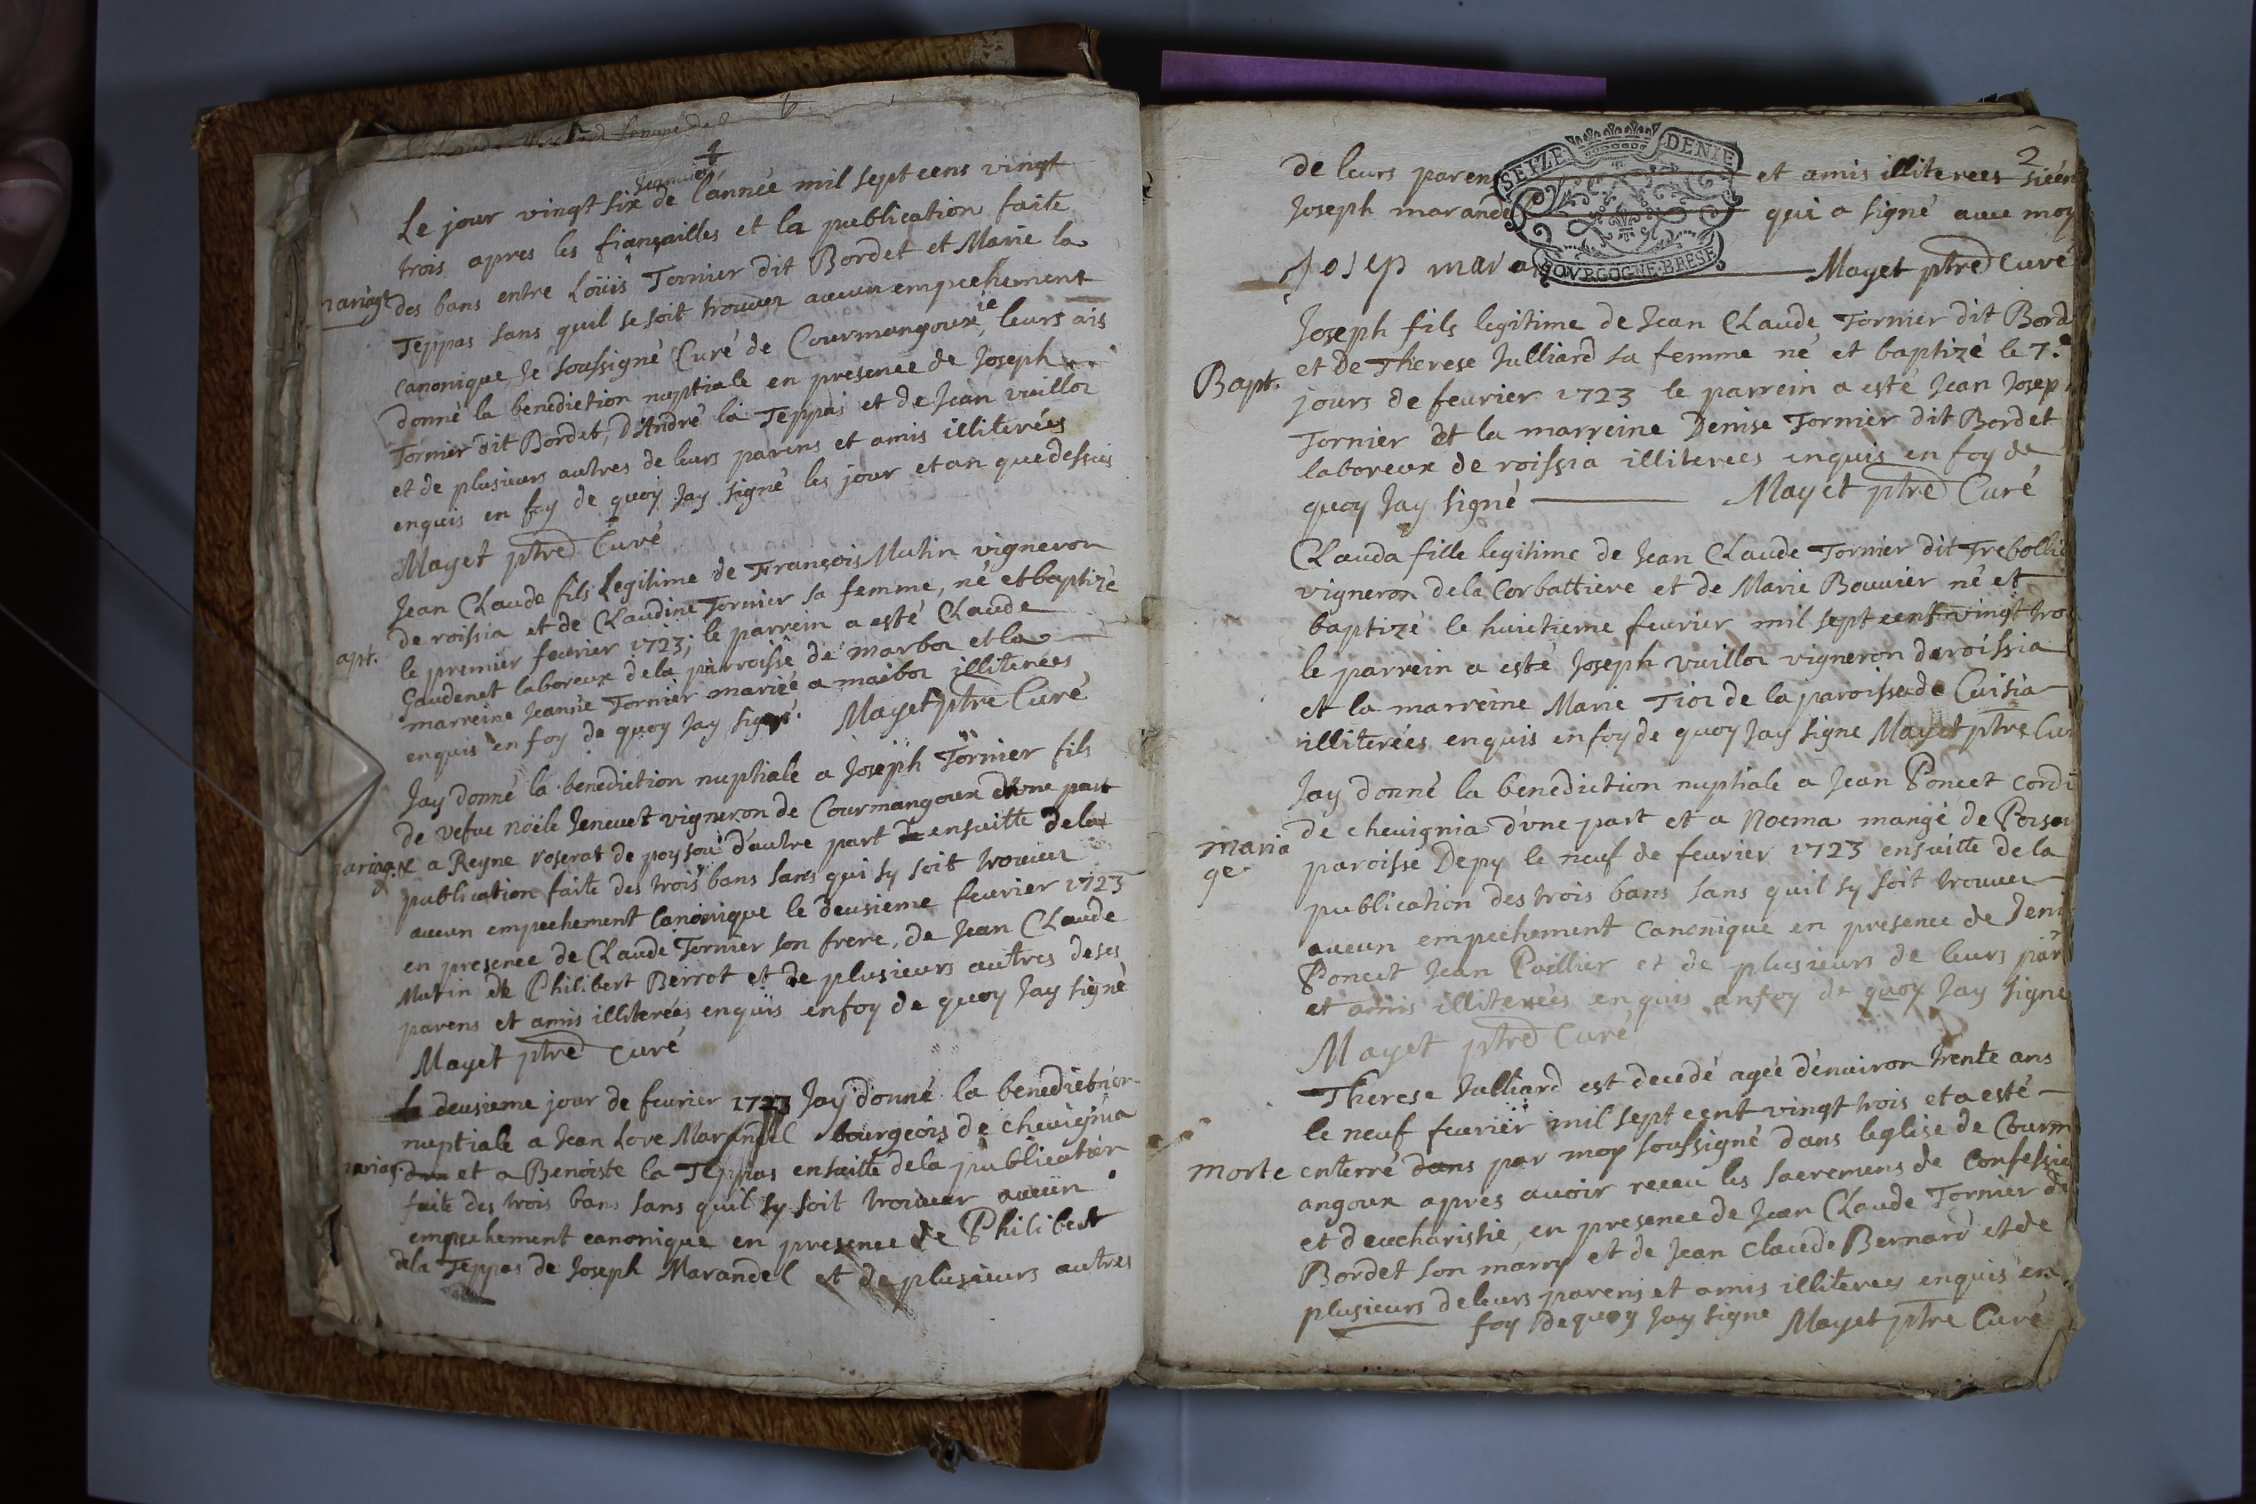 Janvier
Le jour vingt six de l'année mil sept cens vingt
trois apres les fiançailles et la publication faite
mariage des bans entre Loüis Tornier dit Bordet et Marie la
Teppas sans quil se soit trouver aucun empechement
canonique, Je soussigné Curé de Courmangoux, ie leurs ais
donné la benediction nuptiale en presence de Joseph
Tornier dit Bordet, D'André la Teppas et de Jean vuilloz
et de plusieurs autres de leurs parens et amis illiterées
enquis en foy de quoy Jay signé les jour et an que dessus
Mayet ptre Curé
Jean Claude fils Legitime de François Mutin vigneron
de roissia et de Claudine Tornier sa femme, né et baptizé
apt. le premier fevrier 1723; le parrein a esté Claude
Gaudenet laboreux dela parroisse de marboz et la
marreine Jeanne Tornier mariée a maiboz illiterées
enquis en foy de quoy Jay signé. Mayet ptre Curé
Jay donné la benediction nuptiale a Joseph Tornier fils
de vefue noële Jenevet vigneron de Courmangoux d'vne part
mariag. et a Reyne roserat de poysou d'autre part ensuitte dela
publication faite des trois bans sans qui sy soit trouver
aucun empechement Canonique le deusieme fevrier 1723
en presence de Claude Tornier son frere, de Jean Claude
Mutin de Philibert Berrot et de plusieurs autres de ses
parens et amis illiterées enquis enfoy de quoy Jay signé
Mayet ptre Curé
Le deusieme jour de fevrier 1723 Jay donné la benediction
nuptiale a Jean Love Marandel bourgeois de chevignia
mariag. et a Benoiste la Teppas ensuitte dela publication
faite des trois bans sans quil sy soit trouver aucun
empechement canonique en presence de Philibert
dela Teppas de Joseph Marandel et de plusieurs autres
2
de leurs paren et amis illiterees sicen
Joseph marande qui a signé avec moy
SEIZE DENIE
BOVRGOGNE BRESE
Josep mara Mayet ptre Curé
Joseph fils legitime de Jean Claude Tornier dit Bord
et de Therese Julliard sa femme né et baptizé le 7.e
Bapt. jours de fevrier 1723 le parrein a esté Jean Josep
Tornier et la marreine Denise Tornier dit Bordet
laboreux de roissia illiterees enquis en foy de
quoy Jay signé Mayet ptre Curé
Clauda fille legitime de Jean Claude Tornier dit Trebollie
vigneron dela Corbattiere et de Marie Bouvier né et
baptizé le huictieme fevrier mil sept cent vingt tro
le parrein a esté Joseph vuilloz vigneron de roissia
et la marreine Marie Tioz de la paroisse de Cuisia
illiterées enquis enfoy de quoy Jay signe Mayet ptre Cur
Jay donné la benediction nuptiale a Jean Poncet Cordi
de chevignia d'vne part et a Noema mangé de Poisou
maria
ge paroisse Depy le neuf de fevrier 1723 ensuitte de la
publication des trois bans sans quil sy soit trouver
aucun empechement canonique en presence de Deni
Poncet Jean Poillier et de plusieurs de leurs par
et amis illiterées enquis enfoy de quoy Jay signé
Mayet ptre Curé
Therese Julliard est decedé agée d'environ trente ans
le neuf fevrier mil sept cent vingt trois et a esté
morte enterré dans par moy soussigné dans leglise de Courm
angoux apres avoir receu les sacremens de Confessio
et d eucharistie, en presence de Jean Claude Tornier di
Bordet son marry et de Jean Claude Bernard et de
plusieurs de leurs parens et amis illiterees enquis en
foy De quoy Jay signe Mayet ptre Curé